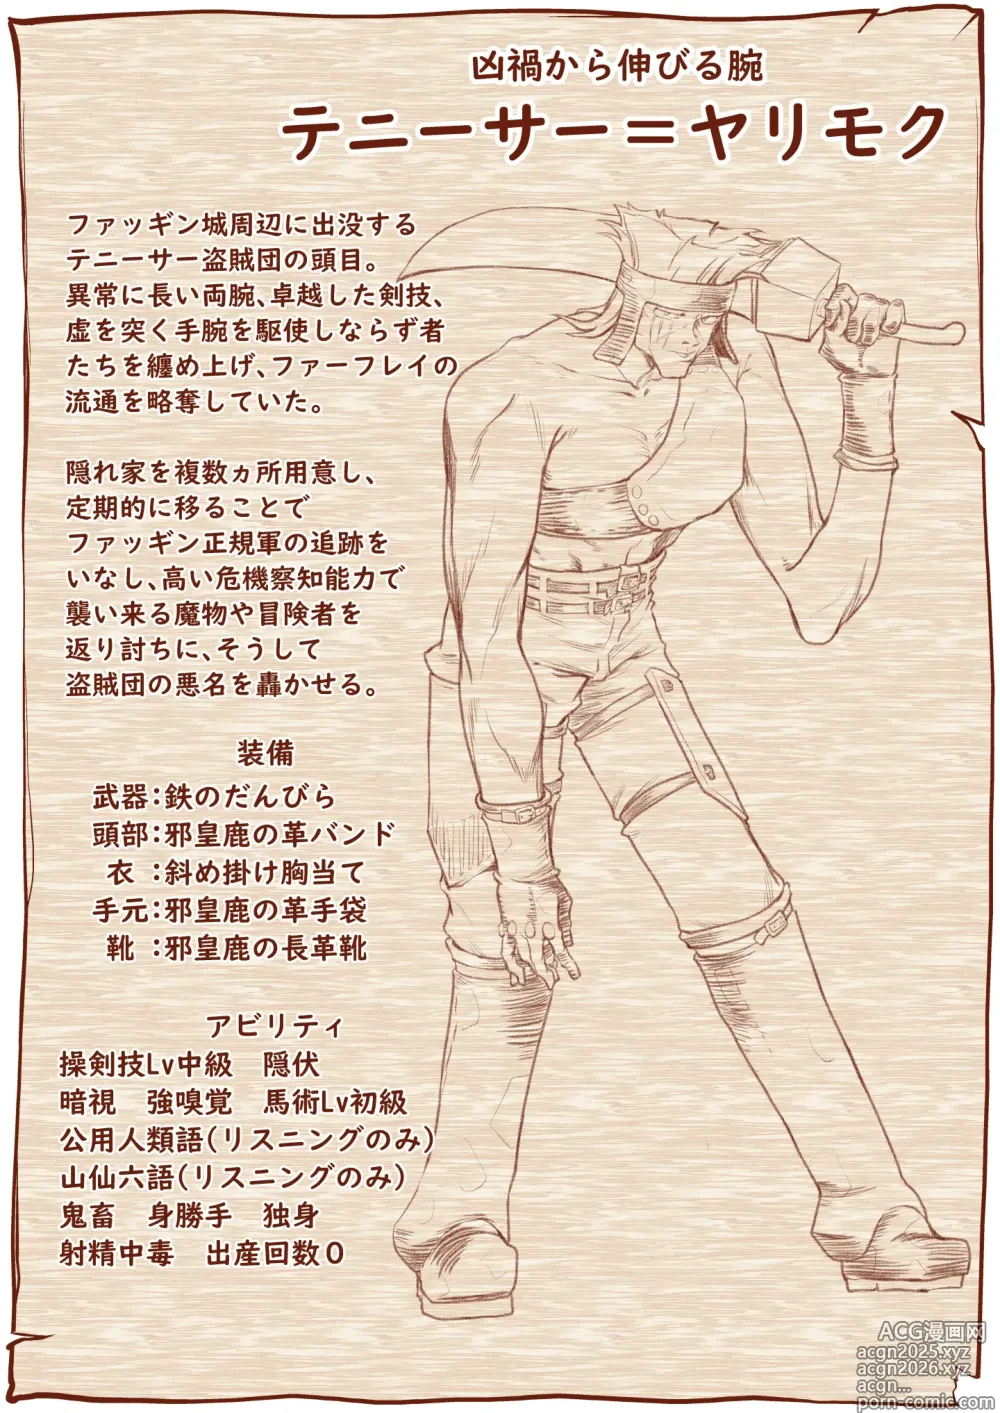 凶禍から伸びる腕
テニーサー＝ヤリモク
ファッギン城周辺に出没する
テニーサー盗賊団の頭目。
異常に長い両腕、卓越した剣技、
虚を突く手腕を駆使しならず者
たちを纏め上げ、ファーフレイの
流通を略奪していた。
隠れ家を複数ヵ所用意し、
定期的に移ることで
ファッギン正規軍の追跡を
いなし、高い危機察知能力で
襲い来る魔物や冒険者を
返り討ちに、そうして
盗賊団の悪名を轟かせる。
装備
武器：鉄のだんびら
頭部：邪皇鹿の革バンド
衣　：斜め掛け胸当て
手元：邪皇鹿の革手袋
靴　：邪皇鹿の長革靴
アビリティ
操剣技Lv中級　隠伏
暗視　強嗅覚　馬術Lv初級
公用人類語（リスニングのみ）
山仙六語（リスニングのみ）
鬼畜　身勝手　独身
射精中毒　出産回数０
ACG漫画网
acgn2025.xyz
acgn2026.xyz
acgn...
porn-comic.com